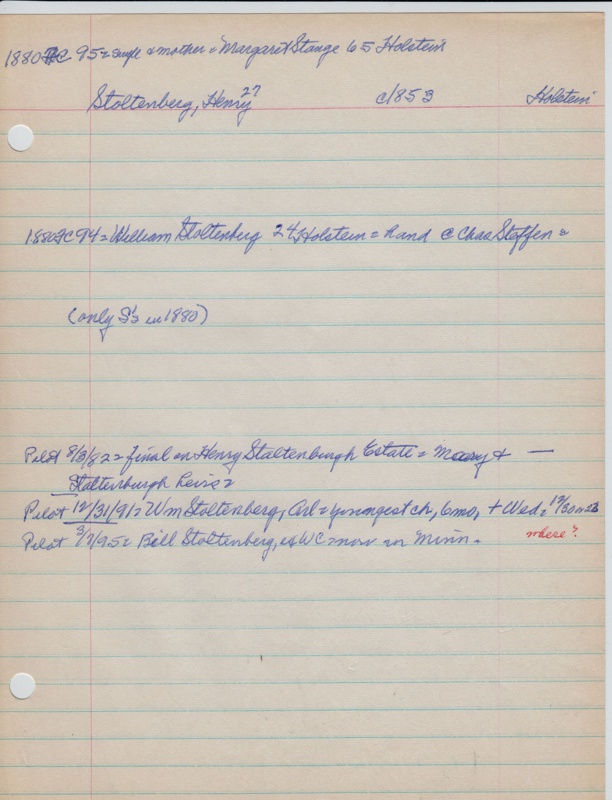 1880 FC 95 = single & mother = Margaret Stange 65 Holstein
Stoltenberg, Henry 27 c1853 Holstein
1880 FC 94 = William Stoltenberg 24 Holstein = hand @ Chas Steffen =
(only S's in 1880)
Pilot 8/3/82 = final on Henry Staltenburgh Estate = Mary & —
Staltenburgh heirs =
Pilot 12/31/91 = Wm Stoltenberg, = youngest ch, 6 mo, + Wed,
Pilot 3/7/95 = Bill Stoltenberg, of WC = now in Minn. where?